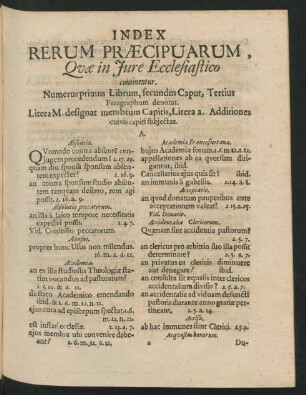 INDEX
RERUM PRÆCIPUARUM,
Qvæ in Jure Ecclesiastico
continentur.
Numerus primus Librum, secundus Caput, Tertius
Paragraphum denotat.
Litera M. designat membrum Capitis, Litera a. Additiones
cuivis capiti subjectas.
A.
Absentia.
QVomodo contra absentes con-
jugem procedendum? 2. 17. 29.
quam diu sponsa sponsum absen-
tem expectet? 2. 16. 9.
an contra sponsum studio absen-
tem tanquam deserto, rem agi
possit? 2. 16. a.
Absolutio peccatorum.
an illa à laico tempore necessitatis
expediri possit? 1. 4. 7.
Vid. Confessio peccatorum.
Abusus.
propter hunc Usus non tollendus.
16. m. 2. a. 12.
Academia.
an ex illa studiosus Theologiæ sta-
tim vocandus ad pastoratum?
2. 5. 10. & a. 11.
de statu Academico emendando
ibid. & 1. 6. m. 12. a. 11.
ejus cura ad episcopum spectat. 1. 6.
m. 12. n. 12.
est instar ecclesiæ. 2. 12. a. 7.
ejus membra ubi convenire debe-
ant? 2. 6. m. 32. a. 12.
Academia Francofurtana.
hujus Academiæ forum. 1. 6. m. 12. a. 12.
appellationes ab ea qvorsum diri-
gantur, ibid.
Cancellarius ejus qvis sit? ibid.
an immunis à gabellis. 2. 14. a. 8.
Acceptatio.
an qvod donatum pauperibus ante
acceptationem valeat? 2. 15. a. 25.
Vid. Donatio.
Accidentalia Clericorum.
Qvænam sint accidentia pastorum?
2. 5. 7.
an clericus pro arbitrio suo illa possit
determinare? 2. 5. a.
an privatus ea clericis diminuere
aut denegare? ibid.
an consulta sit æqualis inter clericos
accidentalium divisio? 2. 5. a. 7.
an accidentalia ad viduam defuncti
pastoris durante anno gratiæ per-
tineant. 2. 5. a. 14.
Accisa.
ab hac immunes sunt Clerici. 2. 5. 9.
Acqvestus bonorum.
a
Du-